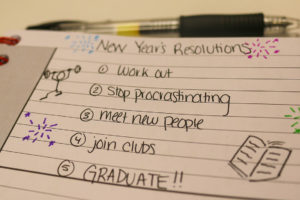 New Year's Resolutions
1 Work out
2 Stop procrastinating
3 meet new people
4 join clubs
5 GRADUATE!!